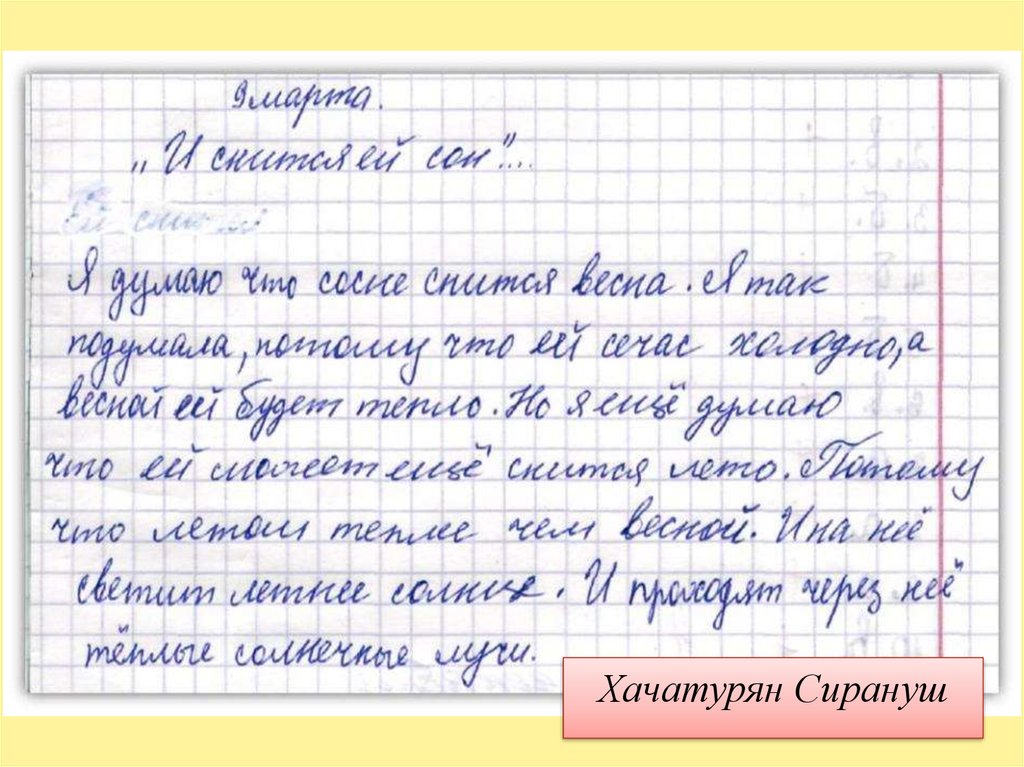 9 марта.
„И снится ей сон"...
Ей снит
Я думаю что сосне снится весна. Я так
подумала, потому что ей сечас холодно, а
весной ей будет тепло. Но я ещё думаю
что ей может ещё снится лето. Потому
что летом теплее чем весной. И на неё
светит летнее солнце. И проходят через неё
тёплые солнечные лучи.
Хачатурян Сирануш